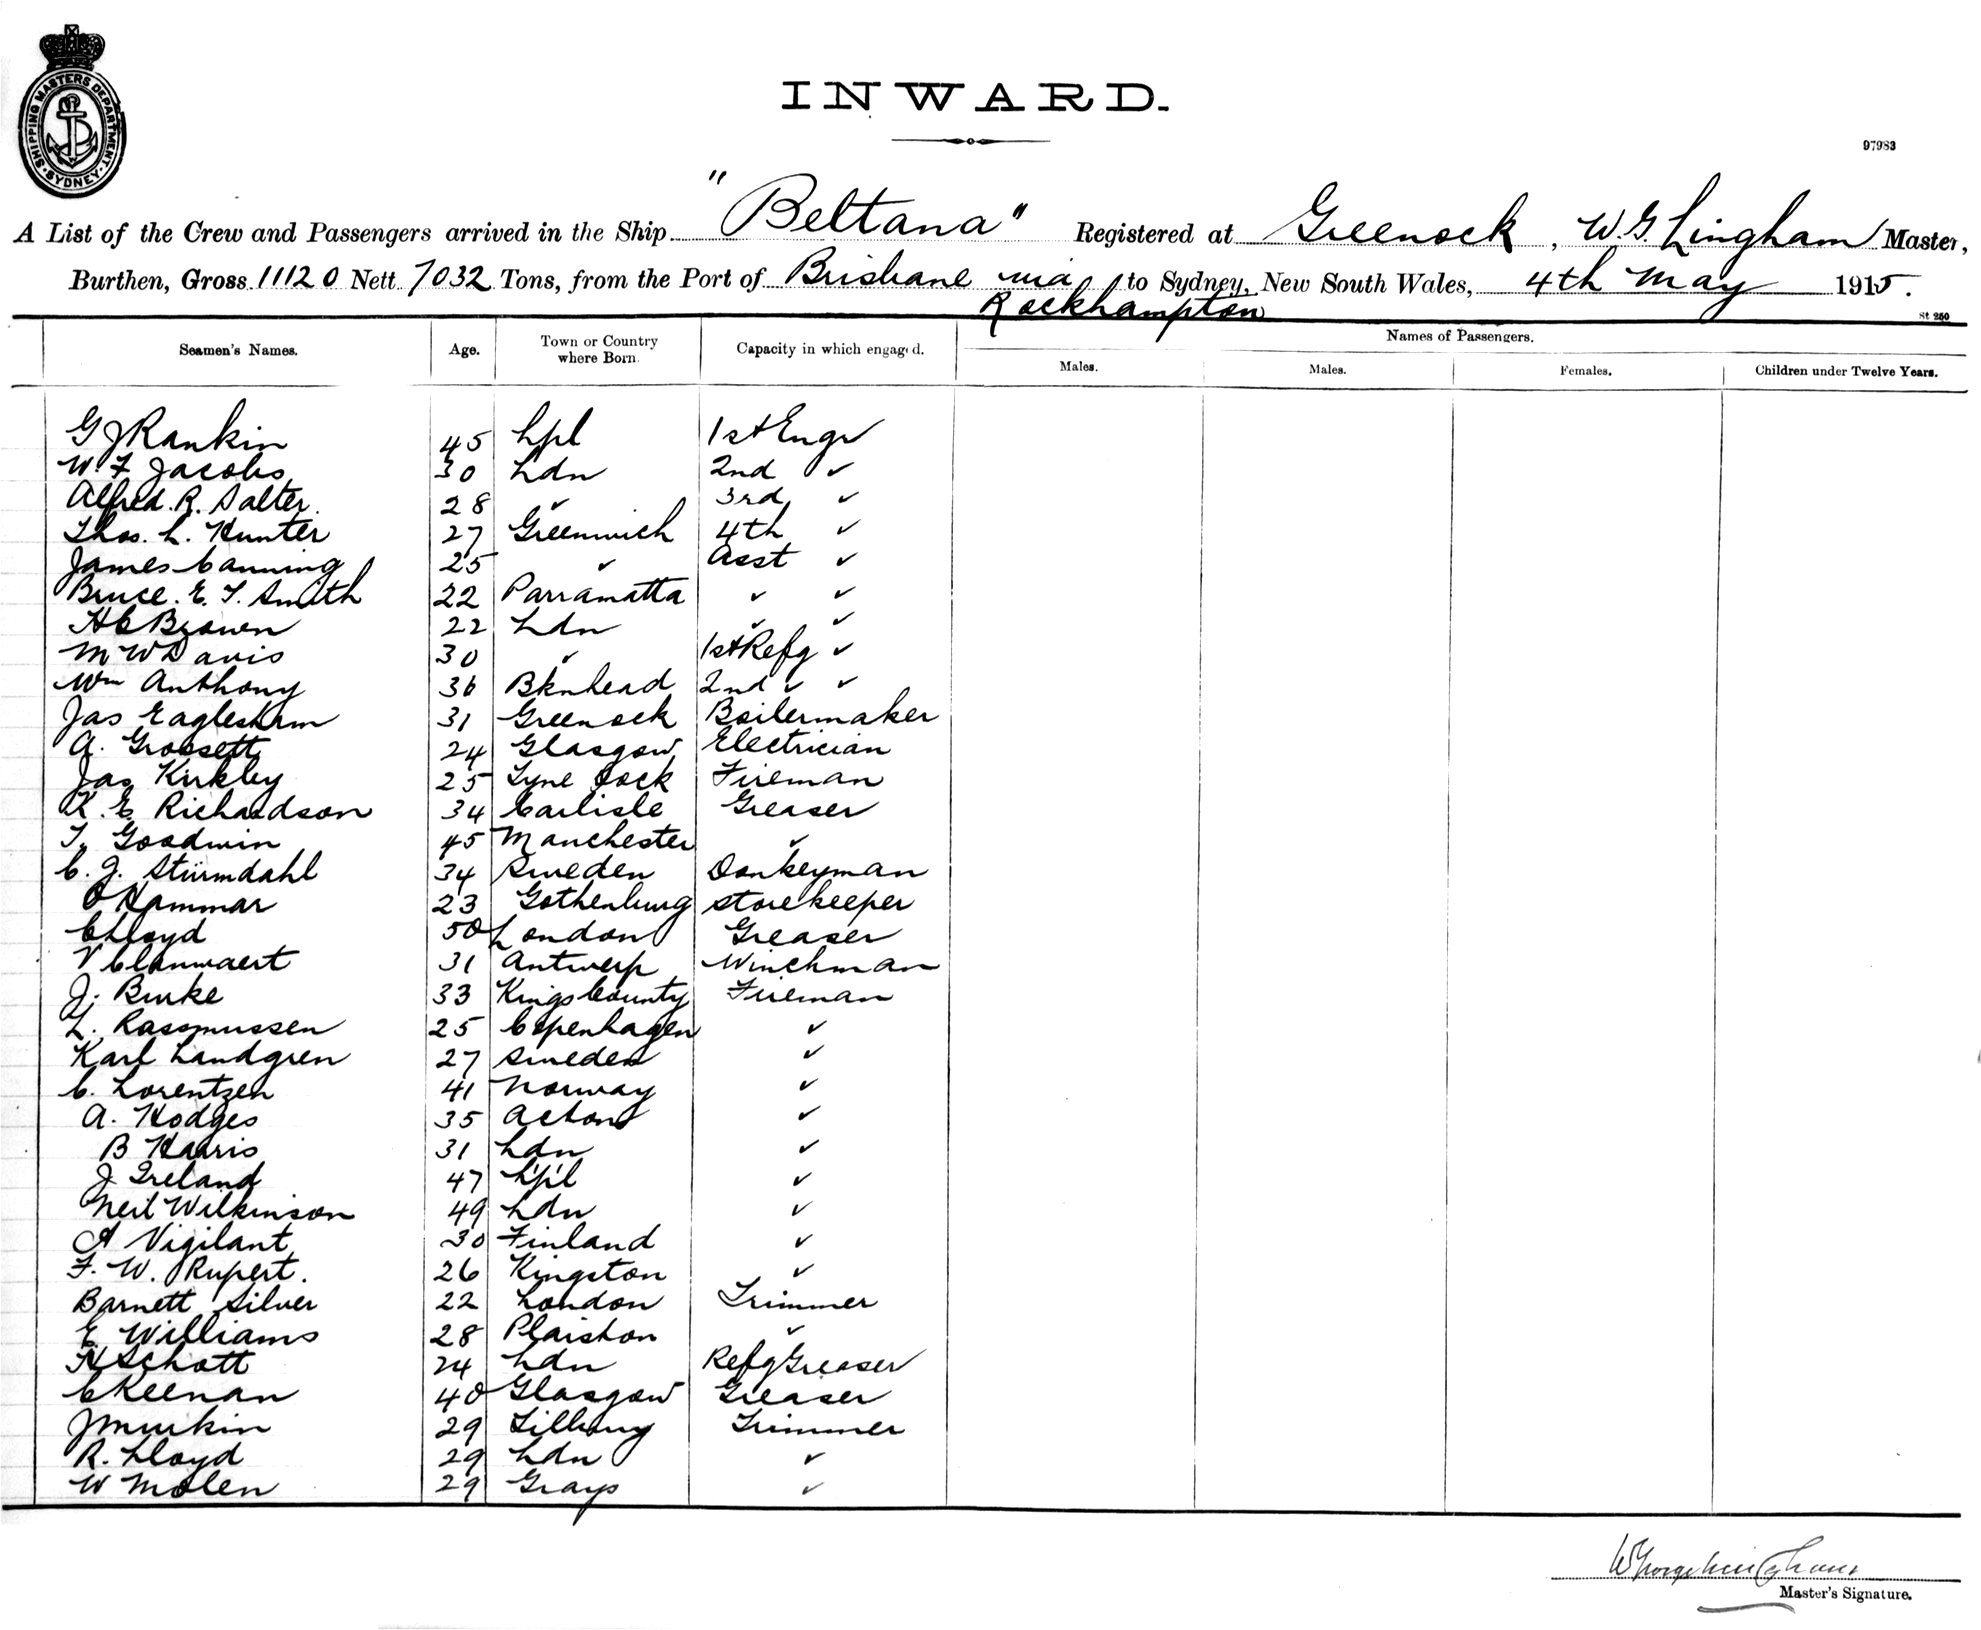 SHIPPING MASTERS DEPARTMENT · SYDNEY ·
INWARD.
97983
A List of the Crew and Passengers arrived in the Ship "Beltana" Registered at Greenock, W. G. Lingham Master,
Burthen, Gross 11120 Nett 7032 Tons, from the Port of Brisbane via Rockhampton to Sydney, New South Wales, 4th May 1915.
St 250
Seamen's Names. Age. Town or Country where Born. Capacity in which engaged. Names of Passengers.
Males. Males. Females. Children under Twelve Years.
G J Rankin 45 Lpl 1st Engr
W. F Jacobs 30 Ldn 2nd ✓
Alfred. R. Salter. 28 ✓ 3rd ✓
Thos. L. Hunter 27 Greenwich 4th ✓
James Canning 25 ✓ Asst ✓
Bruce. E. T. Smith 22 Parramatta ✓ ✓
H C Brown 22 Ldn ✓ ✓
M W Davis 30 ✓ 1st Refg ✓
Wm Anthony 36 Bknhead 2nd ✓ ✓
Jas Eaglesham 31 Greenock Boilermaker
A. Grossett 24 Glasgow Electrician
Jas Kirkley 25 Tyne Dock Fireman
K. E Richardson 34 Carlisle Greaser
T. Goodwin 45 Manchester ✓
C. J. Stürmdahl 34 Sweden Donkeyman
O Hammar 23 Gothenburg Storekeeper
C Lloyd 50 London Greaser
V Clanwaert 31 Antwerp Winchman
J. Burke 33 Kings County Fireman
L. Rassmussen 25 Copenhagen ✓
Karl Landgren 27 Sweden ✓
C. Lorentzen 41 Norway ✓
A. Hodges 35 Acton ✓
B Harris 31 Ldn ✓
J Ireland 47 L'p'l ✓
Neil Wilkinson 49 Ldn ✓
A Vigilant 30 Finland ✓
F. W. Rupert. 26 Kingston ✓
Barnett Silver 22 London Trimmer
E Williams 28 Plaiston ✓
H Schott 24 Ldn Refg Greaser
C Keenan 40 Glasgow Greaser
J Murkin 29 Tilbury Trimmer
R. Lloyd 29 Ldn ✓
W Molen 29 Grays ✓
W George Lingham
Master's Signature.